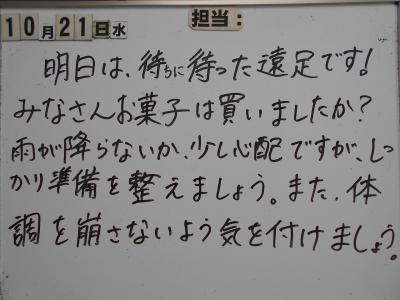 10月21日水 担当:
明日は、待ちに待った遠足です!
みなさんお菓子は買いましたか?
雨が降らないか、少し心配ですが、しっ
かり準備を整えましょう。また、体
調を崩さないよう気を付けましょう。